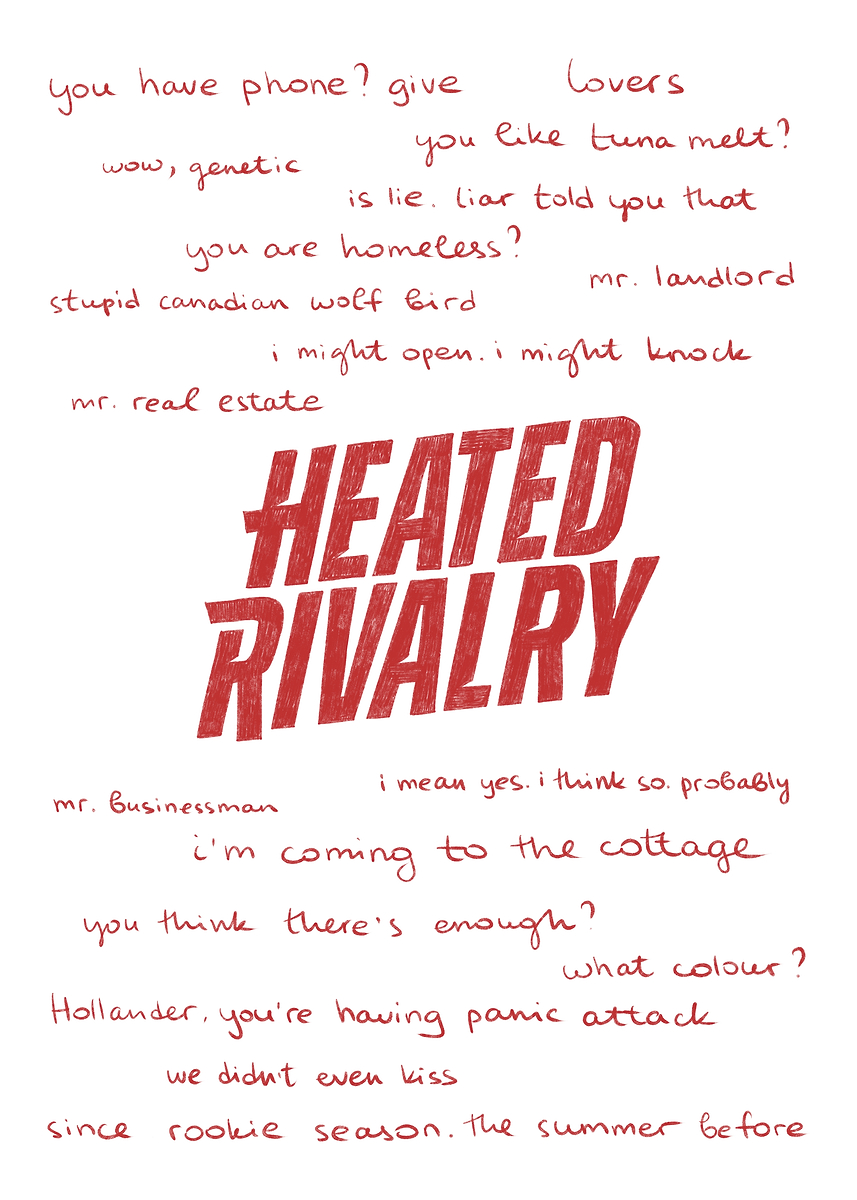 you have phone? give
lovers
you like tuna melt?
wow, genetic
is lie. liar told you that
you are homeless?
mr. landlord
stupid canadian wolf bird
i might open. i might knock
mr. real estate
HEATED
RIVALRY
i mean yes. i think so. probably
mr. businessman
i'm coming to the cottage
you think there's enough?
what colour?
Hollander, you're having panic attack
we didn't even kiss
since rookie season. the summer before